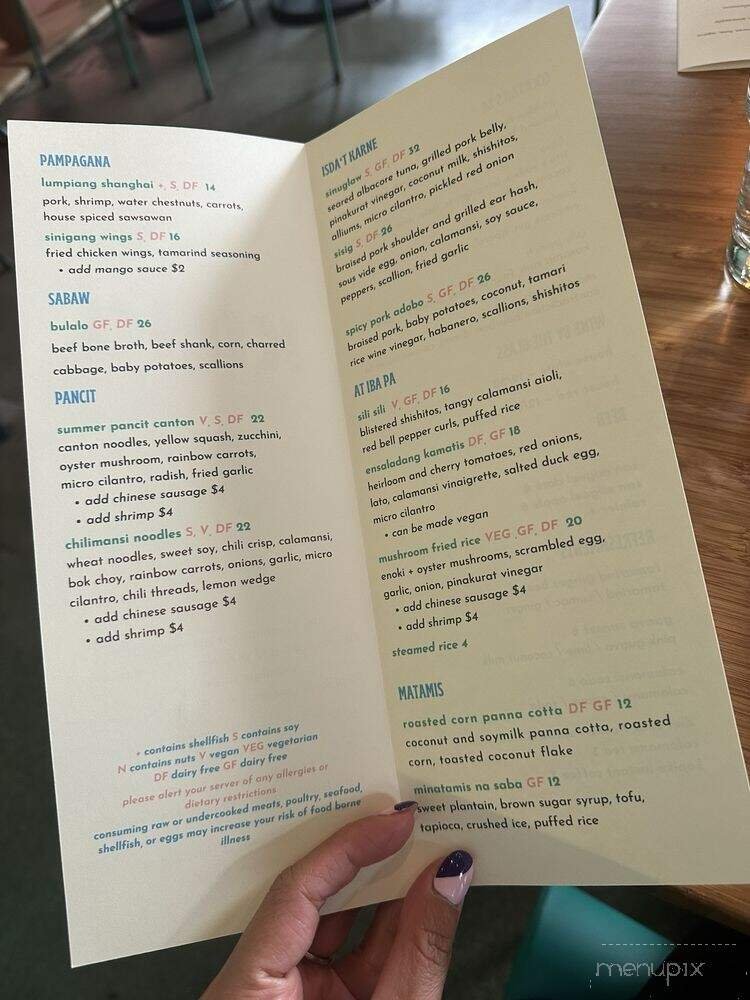 PAMPAGANA
lumpiang shanghai +, S, DF 14
pork, shrimp, water chestnuts, carrots,
house spiced sawsawan
sinigang wings S, DF 16
fried chicken wings, tamarind seasoning
• add mango sauce $2
SABAW
bulalo GF, DF 26
beef bone broth, beef shank, corn, charred
cabbage, baby potatoes, scallions
PANCIT
summer pancit canton V, S, DF 22
canton noodles, yellow squash, zucchini,
oyster mushroom, rainbow carrots,
micro cilantro, radish, fried garlic
• add chinese sausage $4
• add shrimp $4
chilimansi noodles S, V, DF 22
wheat noodles, sweet soy, chili crisp, calamansi,
bok choy, rainbow carrots, onions, garlic, micro
cilantro, chili threads, lemon wedge
• add chinese sausage $4
• add shrimp $4
+ contains shellfish S contains soy
N contains nuts V vegan VEG vegetarian
DF dairy free GF dairy free
please alert your server of any allergies or
dietary restrictions
consuming raw or undercooked meats, poultry, seafood,
shellfish, or eggs may increase your risk of food borne
illness
ISDA'T KARNE
sinuglaw S, GF, DF 32
seared albacore tuna, grilled pork belly,
pinakurat vinegar, coconut milk, shishitos,
alliums, micro cilantro, pickled red onion
sisig S, DF 26
braised pork shoulder and grilled ear hash,
sous vide egg, onion, calamansi, soy sauce,
peppers, scallion, fried garlic
spicy pork adobo S, GF, DF 26
braised pork, baby potatoes, coconut, tamari
rice wine vinegar, habanero, scallions, shishitos
AT IBA PA
sili sili V, GF, DF 16
blistered shishitos, tangy calamansi aioli,
red bell pepper curls, puffed rice
ensaladang kamatis DF, GF 18
heirloom and cherry tomatoes, red onions,
lato, calamansi vinaigrette, salted duck egg,
micro cilantro
• can be made vegan
mushroom fried rice VEG ,GF, DF 20
enoki + oyster mushrooms, scrambled egg,
garlic, onion, pinakurat vinegar
• add chinese sausage $4
• add shrimp $4
steamed rice 4
MATAMIS
roasted corn panna cotta DF GF 12
coconut and soymilk panna cotta, roasted
corn, toasted coconut flake
minatamis na saba GF 12
sweet plantain, brown sugar syrup, tofu,
tapioca, crushed ice, puffed rice
menupix